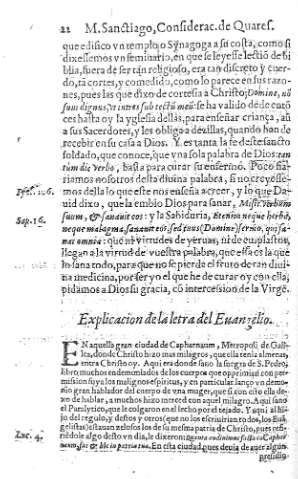 22 M. Sanctiago, Considerac. de Quares.
que edifico vn templo o Synagoga a su costa, como si
dixessemos vn seminario, en que se leyesse lectiõ de bi
blia, fuera de ser tan religioso, era tan discreto y cuer-
do, tã cortes, y comedido, como lo parece en sus razo-
nes, pues las que dixo de cortesia a Christo; Domine, nõ
sum dignus, vt intres sub tectũ meũ: se ha valido dède entõ
ces hasta oy la yglesia dellas, para enseñar criança, aũ
a sus Sacerdotes, y les obliga a dezillas, quando han de
recebir en su casa a Dios. Y es tanta la fe deste sancto
soldado, que conoce, que vna sola palabra de Dios: tan
tum dic verbo, basta para curar su enfermo. Poco fia-
riamos nosotros desta diuina palabra, si no creyesse-
Psal. 106. mos della lo que este nos enseña a creer, y lo que Da-
uid dixo, que la embio Dios para sanar, Misit verbum
Sap. 16. suum, & sanauit eos: y la Sabiduria, Etenim neque herba,
neque malagma, sanauit eos: sed tuus (Domine) sermo, qui sa-
nat omnia: que ni virtudes de yeruas, ni de emplastos,
llegan a la virtud de vuestra palabra, que essa es la que
lo sana todo, para que no se pierda el fruto de tan diui-
na medicina, por ser yo el que he de curar oy con ella,
pidamos a Dios su gracia, cõ intercession de la Virgẽ.
Explicacion de la letra del Euangelio.
EN aquella gran ciudad de Capharnaum, Metropoli de Gali-
lea, donde Christo hizo mas milagros, que ella tenia almenas,
entra Christo oy. Aqui es donde sano la suegra de S. Pedro,
libro muchos endemoniados de los cuerpos que opprimiã con per-
mission suya los malignos espiritus, y en particular lanço vn demo-
nio gran hablador del cuerpo de vna muger, que si con ella ella de-
xo de hablar, a muchos hizo merced con aquel milagro. Aqui sano
el Paralytico, que le colgaron en el lecho por el tejado. Y aqui al hi-
jo del regulo, y destos y otros (que no los escriuirõ todos, los Euã-
gelistas) estauan zelosos los de su mesma patria de Christo, pues refi-
Luc. 4. riẽdole algo desto vn dia, le dixeron: Quanta audiuimus facta in Caphar-
naum, fac & hic in patria tua. En esta ciudad, pues deuia de auer algun
presidio